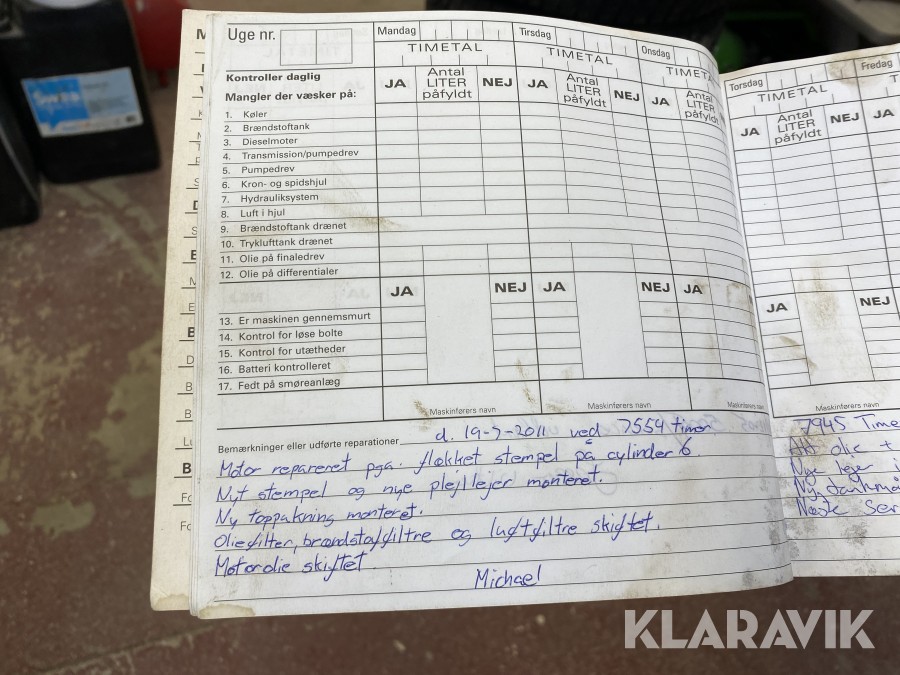 Uge nr.
Mandag
Tirsdag
Onsdag
TIMETAL
TIMETAL
TIMETA
Kontroller daglig
Mangler der væsker på:
JA
Antal LITER påfyldt
NEJ
JA
Antal LITER påfyldt
NEJ
JA
Antal LITER påfyldt
1. Køler
2. Brændstoftank
3. Dieselmoter
4. Transmission/pumpedrev
5. Pumpedrev
6. Kron- og spidshjul
7. Hydrauliksystem
8. Luft i hjul
9. Brændstoftank drænet
10. Tryklufttank drænet
11. Olie på finaledrev
12. Olie på differentialer
JA
NEJ
JA
NEJ
JA
13. Er maskinen gennemsmurt
14. Kontrol for løse bolte
15. Kontrol for utætheder
16. Batteri kontrolleret
17. Fedt på smøreanlæg
Maskinførers navn
Maskinførers navn
Bemærkninger eller udførte reparationer
d. 19-7-2011 ved 7554 timer
Motor repareret pga. flækket stempel på cylinder 6.
Nyt stempel og nye plejllejer monteret.
Ny toppakning monteret.
Oliefilter, brændstoffiltre og luftfiltre skiftet.
Motorolie skiftet
Michael
Torsdag
Fredag
TIMETAL
JA
Antal LITER påfyldt
NEJ
JA
JA
NEJ
7945 Time
olie +
Nye lejer i
Næste Ser
KLARAVIK